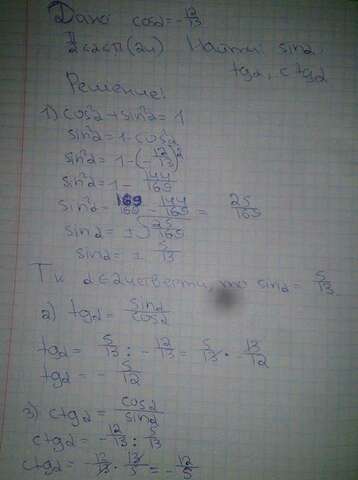 Дано cosα = -12/13
π/2 < α < π (2ч) Найти: sinα,
tgα, ctgα
Решение:
1) cos²α + sin²α = 1
sin²α = 1 - cos²α
sin²α = 1 - (-12/13)²
sin²α = 1 - 144/169
sin²α = 169/169 - 144/169 = 25/169
sinα = ±√25/169
sinα = ± 5/13
Т к α ∈ 2 четверти, то sinα = 5/13
2) tgα = sinα/cosα
tgα = 5/13 : -12/13 = 5/13 · -13/12
tgα = - 5/12
3) ctgα = cosα/sinα
ctgα = -12/13 : 5/13
ctgα = -12/13 · 13/5 = -12/5